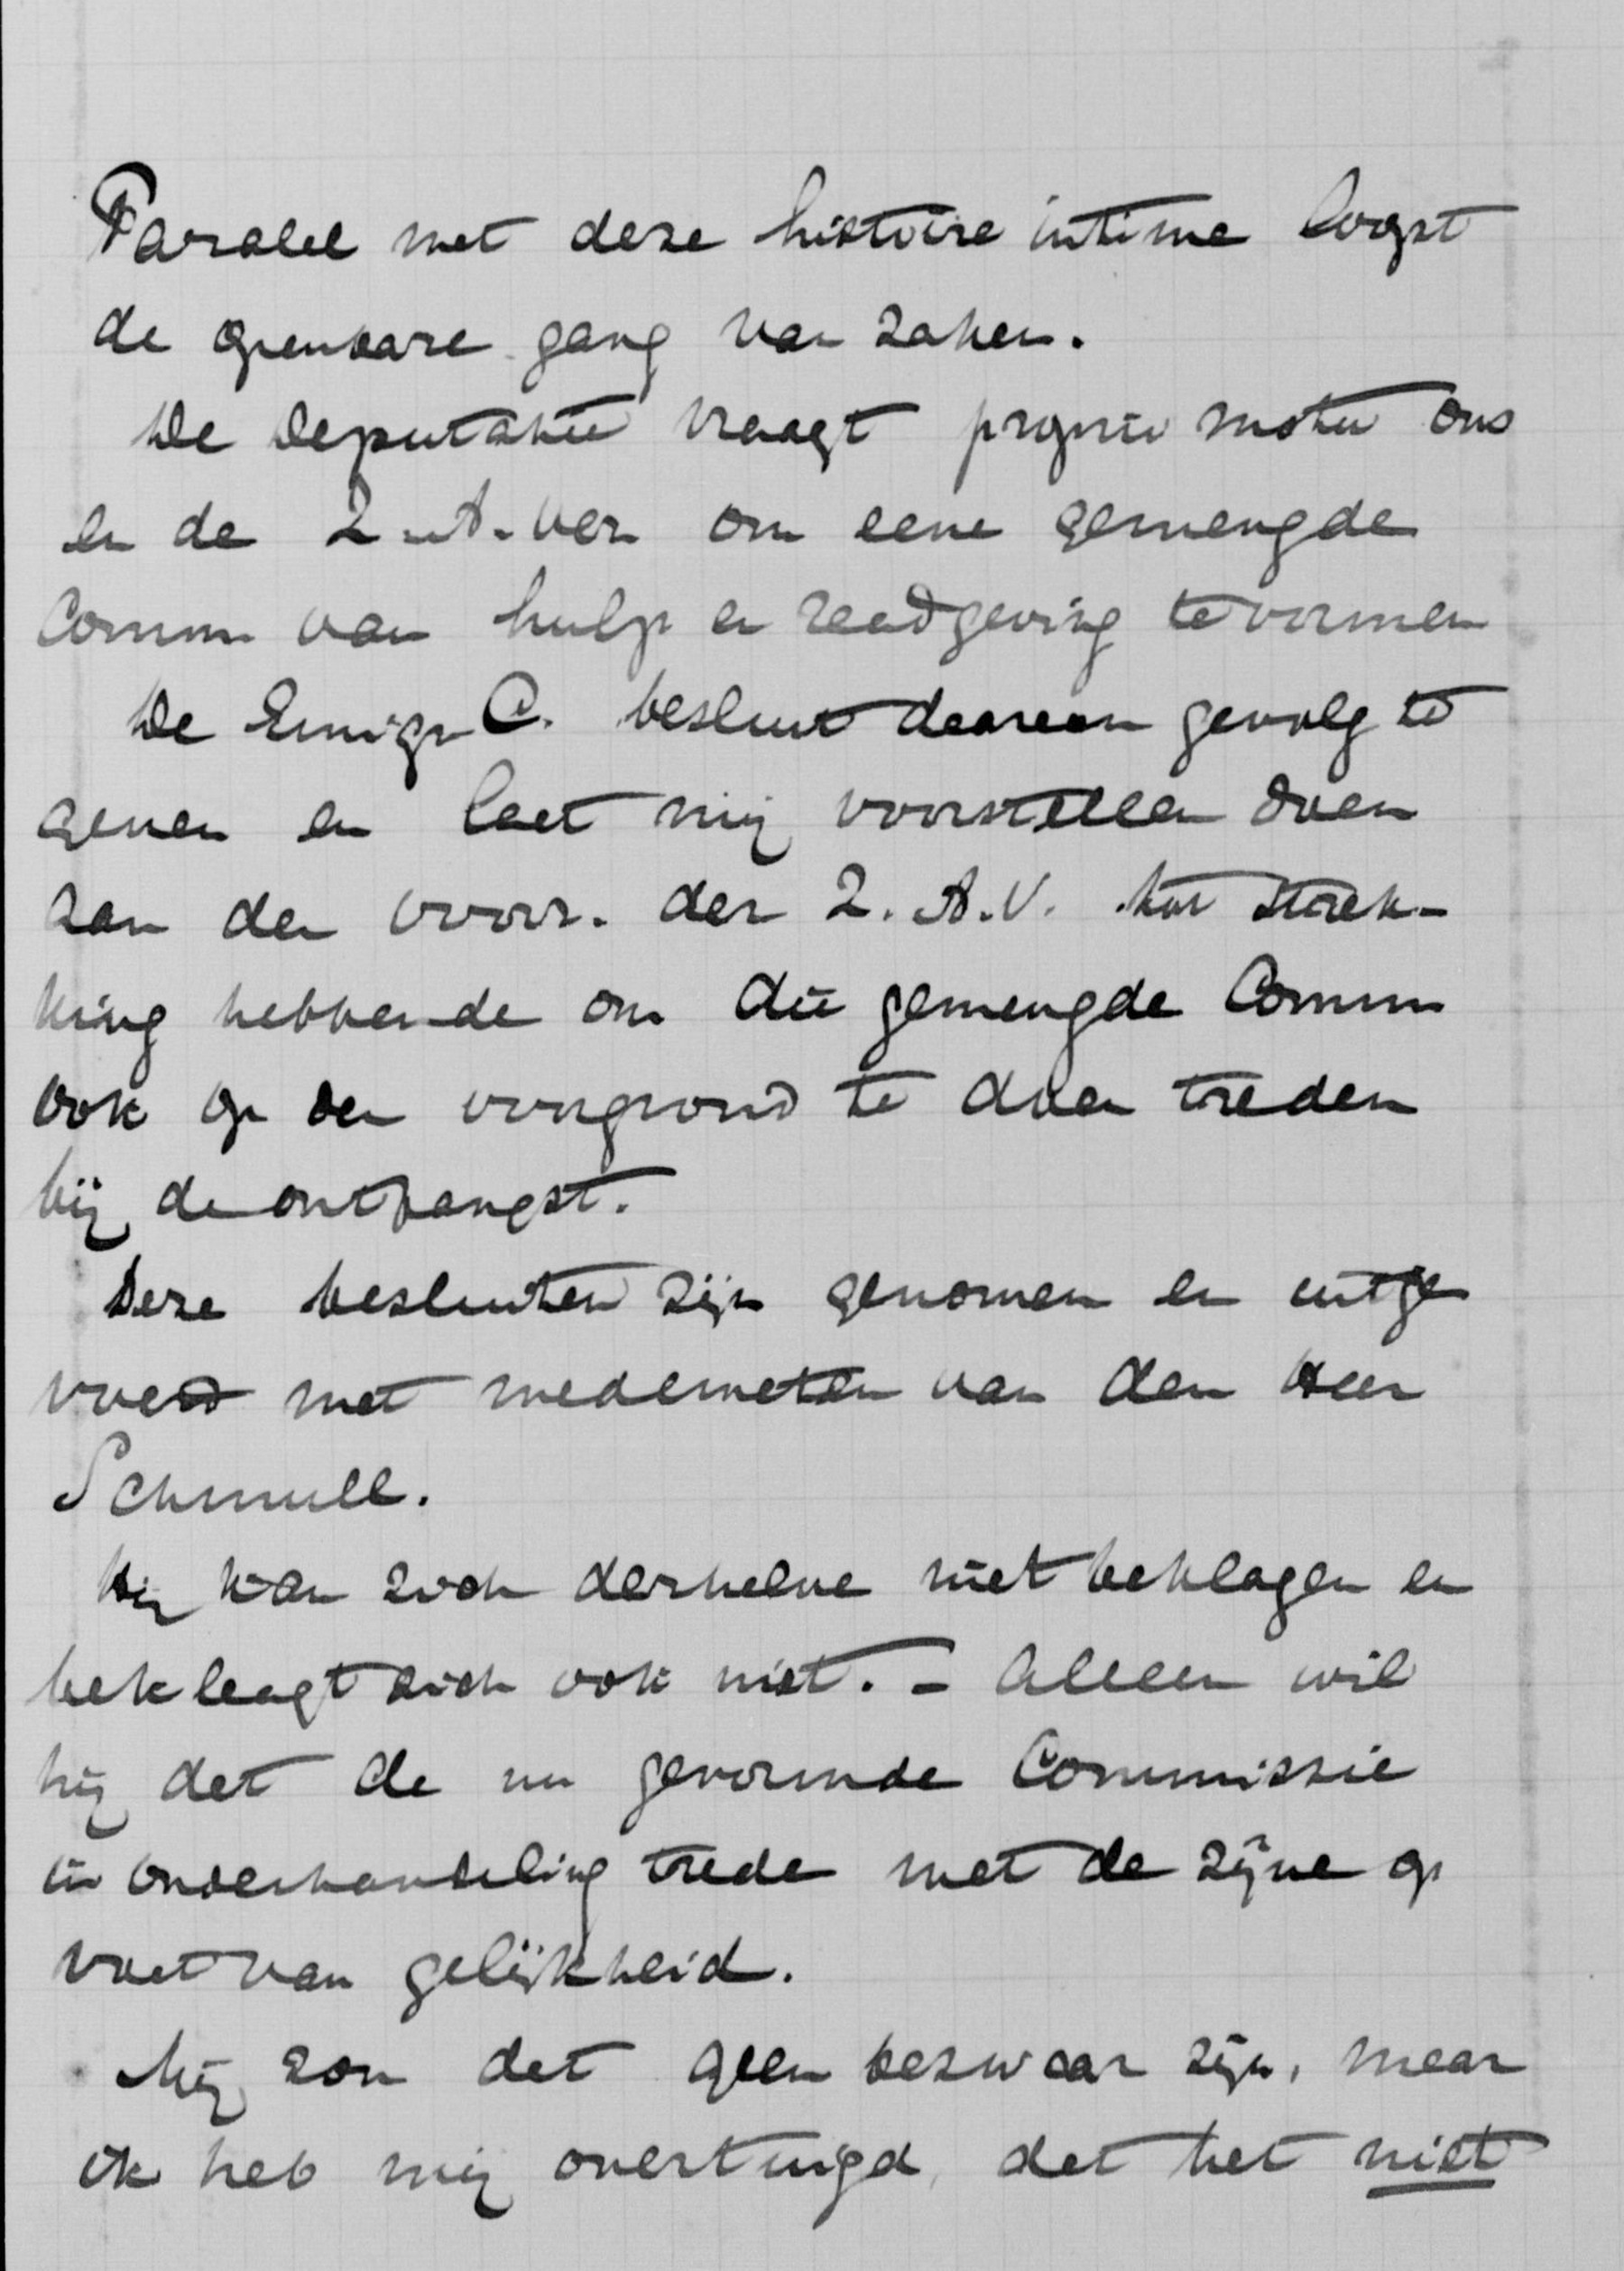 Paralel met deze histoire intime loopt
de openbare gang van zaken.
De Deputatie vraagt proprio motu ons
en de Z-A. Ver om eene gemengde
Comm van hulp en raadgeving te vormen
De Emigr C. besluit daaraan gevolg te
geven en laat mij voorstellen doen
aan den voorz. der Z. A. V. tot strek-
king hebbende om die gemengde Comm
ook op den voorgrond te doen treden
bij de ontvangst.
Deze besluiten zijn genomen en uitge
voerd met medeweten van den Heer
Schmull.
Hij kan zich derhalve niet beklagen en
beklaagt zich ook niet. - Alleen wil
hij dat de nu gevormde Commissie
in onderhandeling trede met de zijne op
voet van gelijkheid.
Mij zou dat geen bezwaar zijn, maar
ik heb mij overtuigd, dat het niet